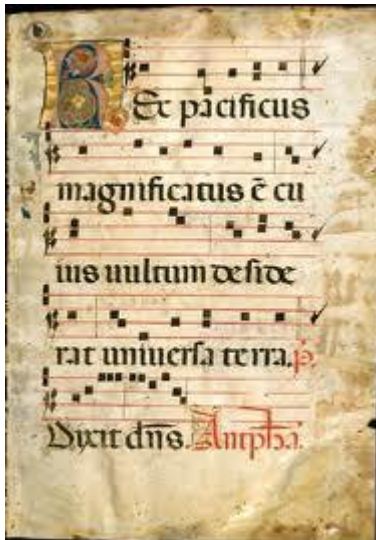 Rex pacificus
magnificatus ē cu
ius uultum deside
rat uniuersa terra. p̄.
Dixit dn̄s. Antiph̄a.